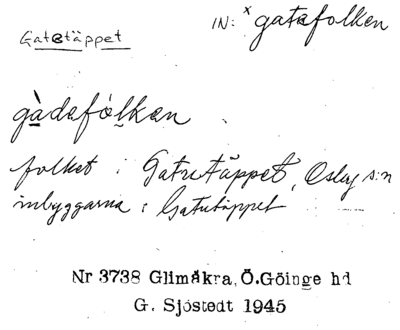 Gatetäppet
IN: x gatafolken
gàdafólken
folket i Gatutäppet, Osby s:n
inbyggarna i Gatutäppet
Nr 3738 Glimåkra, Ö.Göinge hd
G. Sjöstedt 1945